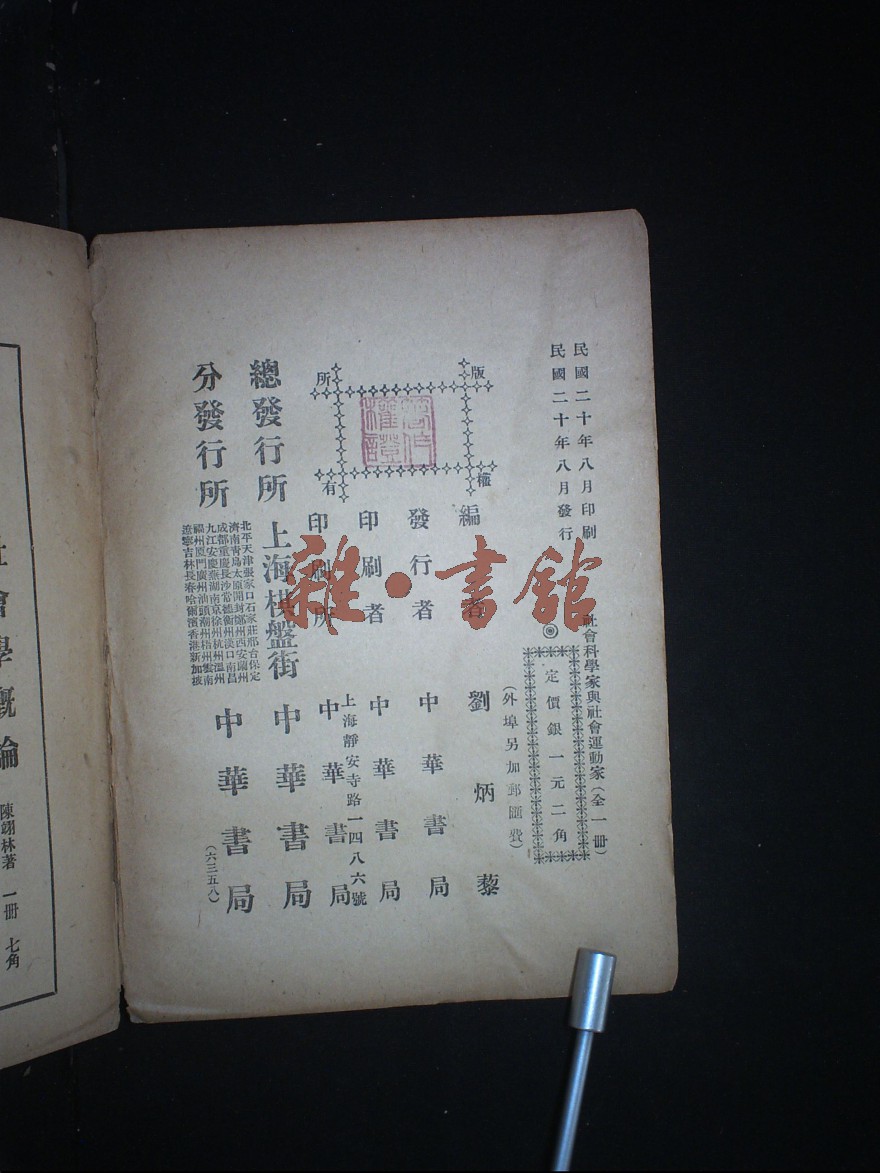 民國二十年八月印刷
民國二十年八月發行
社會科學家與社會運動家(全一冊)
◎定價銀一元二角
(外埠另加郵匯費)
版權所有
著作權證
編者 劉炳藜
發行者 中華書局
印刷者 中華書局
上海靜安寺路一四八六號
印刷所 中華書局
總發行所 上海棋盤街 中華書局
分發行所 中華書局
北平天津張家口石家莊邢台保定
濟南青島太原開封鄭州西安蘭州
成都重慶長沙常德衡州漢口南昌
九江安慶蕪湖南京徐州杭州溫州
福州廈門廣州汕頭潮州梧州雲南
遼寧吉林長春哈爾濱香港新加坡
(六三五八)
雜·書館
社會學概論
陳翊林著 一冊 七角